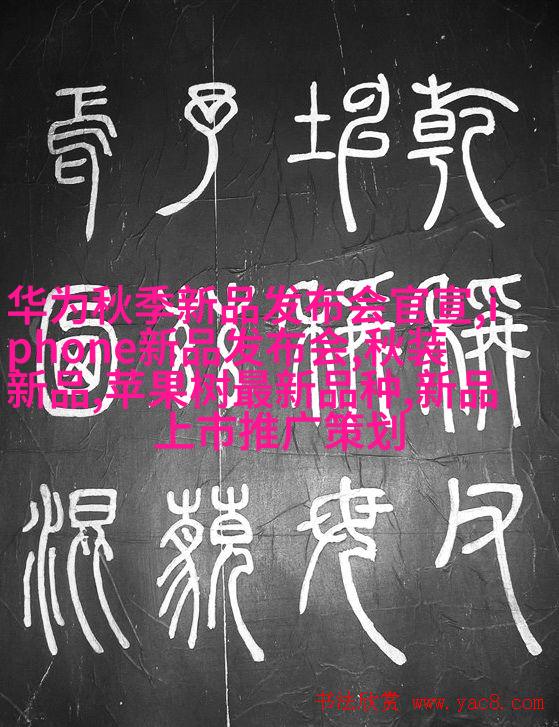 乾稱父
坤稱母
予茲藐
焉 混
华为秋季新品发布会官宣,i
phone新品发布会,秋装
新品,苹果树最新品种,新品
上市推广策划
书法欣赏 www.yac8.com